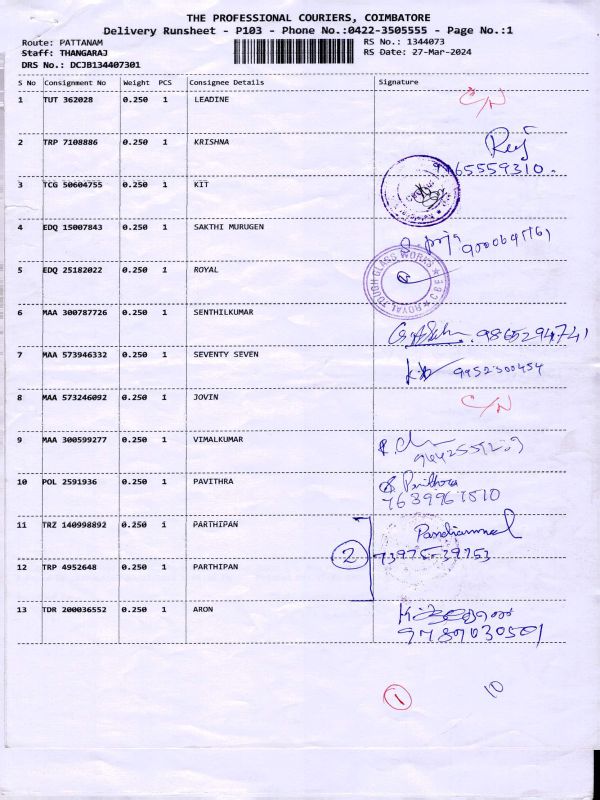 THE PROFESSIONAL COURIERS, COIMBATORE
Delivery Runsheet - P103 - Phone No.:0422-3505555 - Page No.:1
Route: PATTANAM RS No.: 1344073
Staff: THANGARAJ RS Date: 27-Mar-2024
DRS No.: DCJB134407301
S No Consignment No Weight PCS Consignee Details Signature
1 TUT 362028 0.250 1 LEADINE C/N
2 TRP 7108886 0.250 1 KRISHNA
9965559310.
3 TCG 50604755 0.250 1 KIT
4 EDQ 15007843 0.250 1 SAKTHI MURUGEN
5 EDQ 25182022 0.250 1 ROYAL ROYAL TOUGH GLASS WORKS ★ CBE ★
6 MAA 300787726 0.250 1 SENTHILKUMAR 9865294741
7 MAA 573946332 0.250 1 SEVENTY SEVEN 9952300454
8 MAA 573246092 0.250 1 JOVIN C/N
9 MAA 300599277 0.250 1 VIMALKUMAR
10 POL 2591936 0.250 1 PAVITHRA
7639967510
11 TRZ 140998892 0.250 1 PARTHIPAN Pandiammal
2 73975-39753
12 TRP 4952648 0.250 1 PARTHIPAN
13 TDR 200036552 0.250 1 ARON
9789030501
1 10